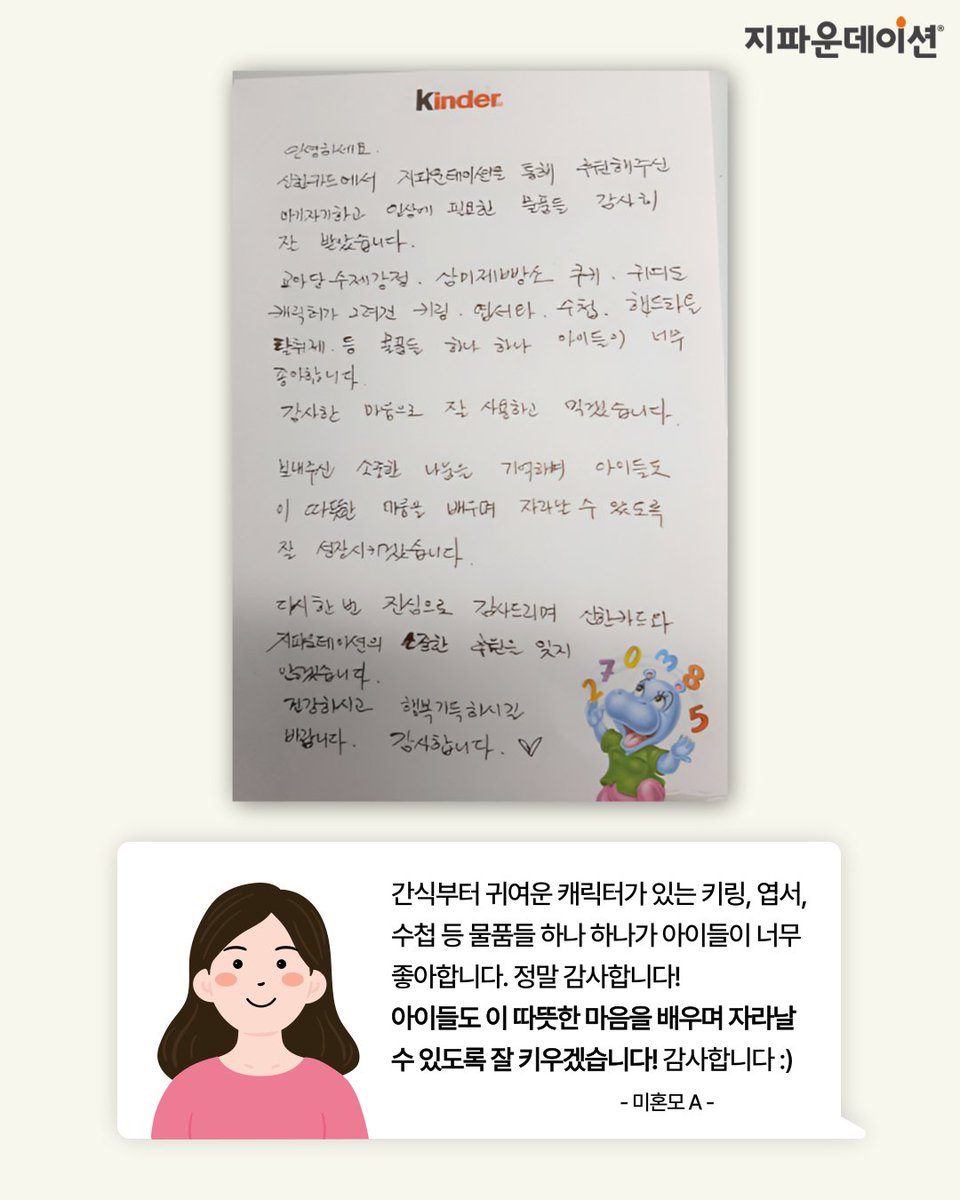 지파운데이션®
Kinder
안녕하세요.
신한카드에서 지파운데이션을 통해 후원해주신
아기자기하고 일상에 필요한 물품들 감사히
잘 받았습니다.
수제강정. 쿠키.
캐릭터가 그려진 키링. 엽서. 수첩.
탈취제. 등 물품들 하나 하나 아이들이 너무
좋아합니다.
감사한 마음으로 잘 사용하고 먹겠습니다.
보내주신 소중한 나눔을 기억하며 아이들도
이 따뜻한 마음을 배우며 자라날 수 있도록
잘 성장시키겠습니다.
다시한번 진심으로 감사드리며 신한카드와
지파운데이션의 소중한 후원을 잊지
않겠습니다.
건강하시고 행복가득하시길
바랍니다. 감사합니다. ♡
2 7 0 3 8 5
간식부터 귀여운 캐릭터가 있는 키링, 엽서,
수첩 등 물품들 하나 하나가 아이들이 너무
좋아합니다. 정말 감사합니다!
아이들도 이 따뜻한 마음을 배우며 자라날
수 있도록 잘 키우겠습니다! 감사합니다 :)
- 미혼모 A -